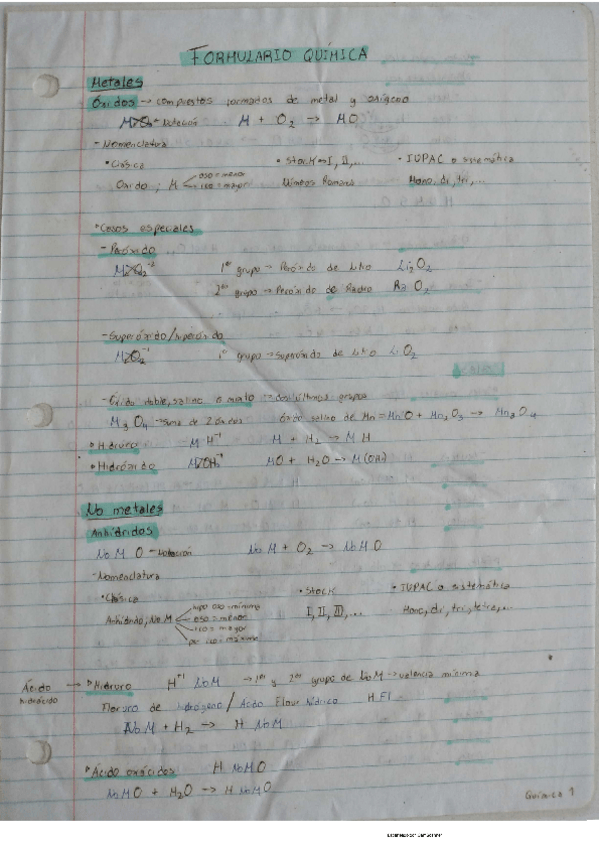 FORMULARIO QUÍMICA
Metales
Óxidos → compuestos formados de metal y oxígeno
- Notación M + O2 → MO
- Nomenclatura
• Clásica • Stock → I, II,... • IUPAC o sistemática
Oxido ; M oso = menor ico = mayor Números Romanos Mono, di, tri,...
• Casos especiales
- Peróxido
M2O2⁻² 1er grupo → Peróxido de Litio Li2O2
2do grupo → Peróxido de Radio Ra O2
- Superóxido/
MO2⁻¹ 1er grupo → Superóxido de Litio LiO2
- Óxido doble, salino o mixto → dos últimos grupos
M3O4 → Suma de 2 óxidos óxido salino de Mn = MnO + Mn2O3 → Mn3O4
• Hidruro → M H⁻¹ M + H2 → M H
• Hidróxido MOH⁻¹ MO + H2O → M(OH)
No metales
Anhídridos
No M O → Notación No M + O2 → No M O
- Nomenclatura
• Clásica • Stock • IUPAC o sistemática
Anhídrido, No M hipo oso = mínimo oso = menor ico = mayor per ico = máximo I, II, III,... Mono, di, tri, tetra,...
Ácido hidrácido → • Hidruro H⁺¹ No M → 1er y 2do grupo de No M → valencia mínima
Floruro de hidrogeno / Acido Fluor hídrico H Fl
No M + H2 → H No M
• Ácido oxácidos H No M O
No M O + H2O → H No M O
Química 1